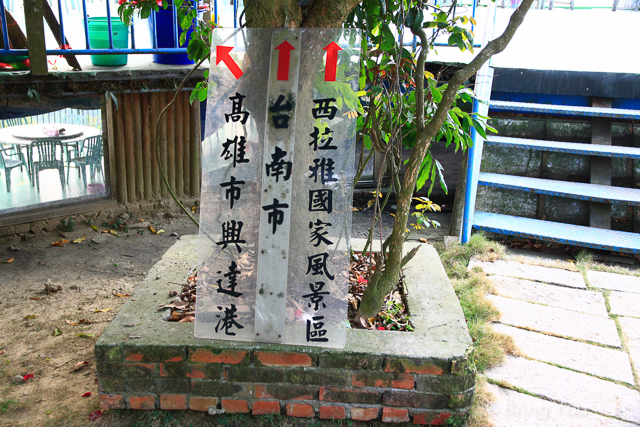 西拉雅國家風景區
台南市
高雄市興達港